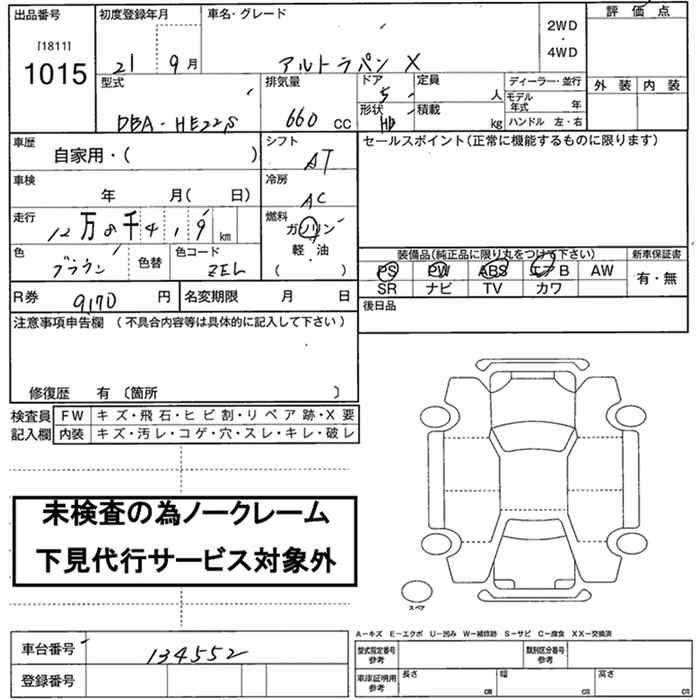 出品番号
[1811]
1015
初度登録年月
21 9月
車名・グレード
アルトラパン X
2WD
・
4WD
評価点
外装 内装
型式
DBA-HE22S
排気量
660 cc
ドア
5
形状
HB
定員
人
積載
kg
ディーラー・並行
モデル
年式 年
ハンドル 左・右
車歴
自家用・( )
車検
年 月( 日)
走行
12万8千419km
色
ブラウン
色替
色コード
ZEL
シフト
AT
冷房
AC
燃料
ガソリン
軽・油
( )
セールスポイント(正常に機能するものに限ります)
装備品(純正品に限り丸をつけて下さい)
PS PW ABS エアB AW
SR ナビ TV カワ
新車保証書
有・無
R券 9170円
名変期限 月 日
後日品
注意事項申告欄 (不具合内容等は具体的に記入して下さい)
修復歴 有〔箇所 〕
検査員
記入欄
FW キズ・飛石・ヒビ割・リペア跡・X要
内装 キズ・汚レ・コゲ・穴・スレ・キレ・破レ
未検査の為ノークレーム
下見代行サービス対象外
スペア
A-キズ E-エクボ U-凹み W-補修跡 S-サビ C-腐食 XX-交換済
車台番号 134552
登録番号
型式指定番号
参考
類別区分番号
参考
車庫証明用
参考
長さ cm
幅 cm
高さ cm